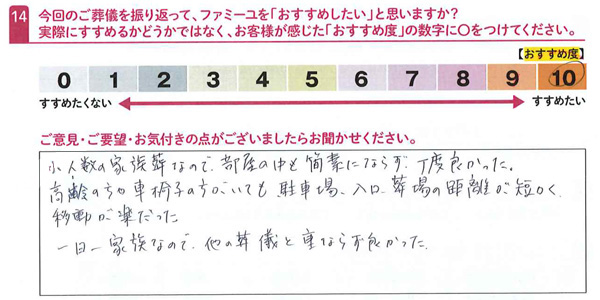 14 今回のご葬儀を振り返って、ファミーユを「おすすめしたい」と思いますか?
実際にすすめるかどうかではなく、お客様が感じた「おすすめ度」の数字に〇をつけてください。
【おすすめ度】
0 1 2 3 4 5 6 7 8 9 10
すすめたくない すすめたい
ご意見・ご要望・お気付きの点がございましたらお聞かせください。
小人数の家族葬なので、部屋の中も簡素にならず、丁度良かった。
高齢の方や車椅子の方がいても駐車場、入口、葬場の距離が短かく、
移動が楽だった
一日一家族なので、他の葬儀と重ならず良かった。